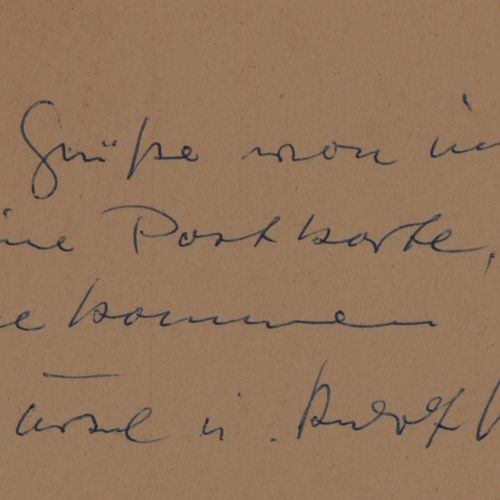 Grüße von
ine Postkarte,
kommen
Ursel u. Rudolf